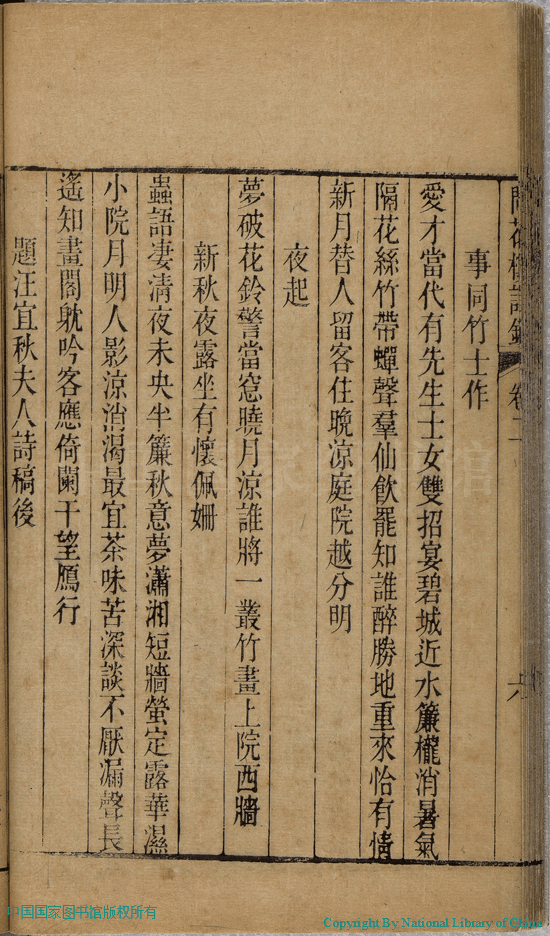 事同竹士作
愛才當代有先生士女雙招宴碧城近水簾櫳消暑氣
隔花絲竹帶蟬聲羣仙飲罷知誰醉勝地重來恰有情
新月替人留客住晚涼庭院越分明
夜起
夢破花鈴警當窓曉月涼誰將一叢竹畫上院西牆
新秋夜露坐有懷佩姍
蟲語凄清夜未央半簾秋意夢瀟湘短牆螢定露華濕
小院月明人影涼消渴最宜茶味苦深談不厭漏聲長
遙知畫閣躭吟客應倚闌干望鴈行
題汪宜秋夫人詩稿後
中国国家图书馆版权所有
Copyright By National Library of China